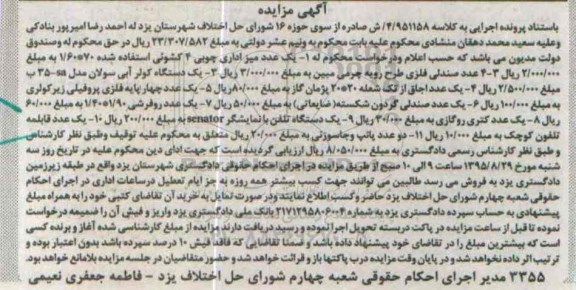 آگهی مزایده
باستناد پرونده اجرایی به کلاسه ۴/۹۵۱۱۵۸/ ش صادره از سوی حوزه ۱۶ شورای حل اختلاف شهرستان یزد له احمد رضا امیرپور بنادکی
وعلیه سعید محمد دهقان منشادی محکوم علیه بابت محکوم به ونیم عشر دولتی به مبلغ ۲۳/۳۰۷/۵۸۲ ریال در حق محکوم له وصندوق
دولت مدیون می باشد که حسب اعلام ودرخواست محکوم له ۱- یک عدد میز اداری چوبی ۴ کشوئی استفاده شده ۷۰*۱/۶۰ به مبلغ
۲/۰۰۰/۰۰۰ ریال ۲-۴ عدد صندلی فلزی طرح رویه چرمی مبین به مبلغ ۳/۰۰۰/۰۰۰ ریال ۳- یک دستگاه کولر آبی سولان مدل sa-۳۵ ب
مبلغ ۲/۵۰۰/۰۰۰ ریال ۴- یک عدد اجاق از تک شعله ۲۰*۳۰ پژمان گاز به مبلغ ۸۰/۰۰۰ ریال ۵- یک عدد چهار پایه فلزی پروفیلی زیرکولری
به مبلغ ۱۰۰/۰۰۰ ریال ۶- یک عدد صندلی گردون شکسته(ضایعاتی) به مبلغ ۵۰/۰۰۰ ریال ۷- یک عدد روفرشی ۱/۹۰*۱/۴۰ به مبلغ ۶۰/۰۰۰
ریال ۸- یک عدد کتری روگازی به مبلغ ۳۰/۰۰۰ ریال ۹- یک دستگاه تلفن بانمایشگر senator به مبلغ ۲۰۰/۰۰۰ ریال ۱۰- یک عدد قابلمه
تلفون کوچک به مبلغ ۱۰/۰۰۰ ریال ۱۱- دو عدد پاتپ وجاسوزنی به مبلغ ۲۰/۰۰۰ ریال متعلق به محکوم علیه توقیف وطبق نظر کارشناس
و طبق نظر کارشناس رسمی دادگستری به مبلغ ۸/۰۵۰/۰۰۰ ریال ارزیابی گردیده است که جهت ادای دین محکوم علیه در تاریخ روز سه
شنبه مورخ ۱۳۹۵/۸/۲۹ ساعت ۹ الی ۱۰ صبح از طریق مزایده در اجرای احکام حقوقی دادگستری شهرستان یزد واقع در طبقه زیرزمین
دادگستری یزد به فروش می رسد طالبین می توانند جهت کسب بیشتر همه روزه به جز ایام تعطیل درساعات اداری در اجرای احکام
حقوقی شعبه چهارم شورای حل اختلاف یزد حاضر وکسب اطلاع نمایند ودر صورت تمایل به خرید آن تقاضای کتبی خود را به همراه مبلغ
پیشنهادی به حساب سپرده دادگستری یزد به شماره ۲۱۷۱۲۹۵۸۰۶۰۰۴ بانک ملی دادگستری یزد واریز و فیش آن را ضمیمه درخواست
نموده تا قبل از ساعت مزایده در پاکت دربسته تحویل اجرا نموده و رسید دریافت دارند مزایده از مبلغ کارشناسی شده آغاز و برنده کسی
است که بیشترین مبلغ را در تقاضای خود پیشنهاد داده باشد و ضمنا تقاضایی که فاقد فیش ۱۰ درصد سپرده باشد بدون اعتبار بوده و
ترتیب اثر داده نخواهد شد و در پایان وقت مزایده درب پاکتها باز و قرائت خواهد شد و حضور متقاضیان در جلسه مزایده بلامانع خواهد بود.
۳۳۵۵ مدیر اجرای احکام حقوقی شعبه چهارم شورای حل اختلاف یزد - فاطمه جعفری نعیمی